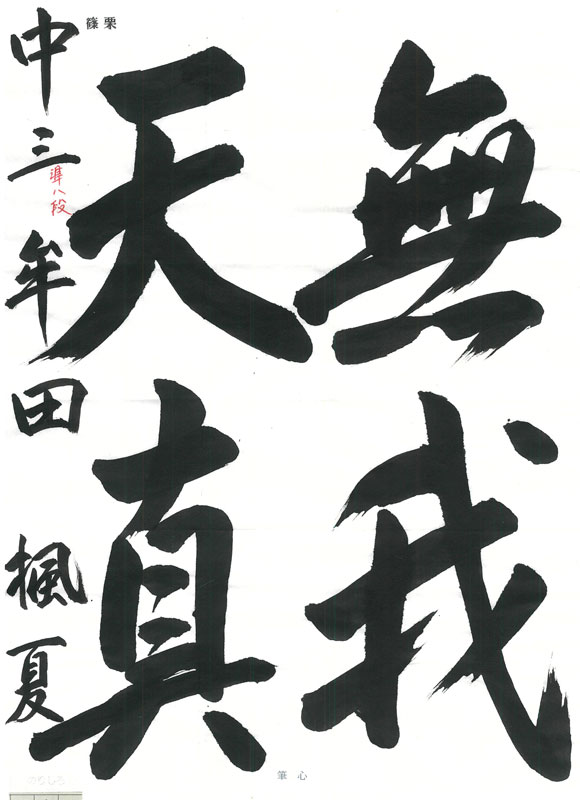 無我
天真
篠栗
中三 準八段 牟田 楓夏
心筆